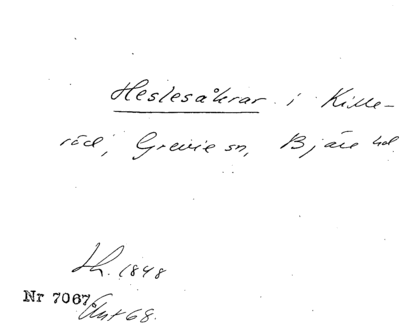 Heslesåkrar i Kille-
röd, Grevie sn, Bjäre hd.
Sh. 1848
Nr 7067
Ent 68.